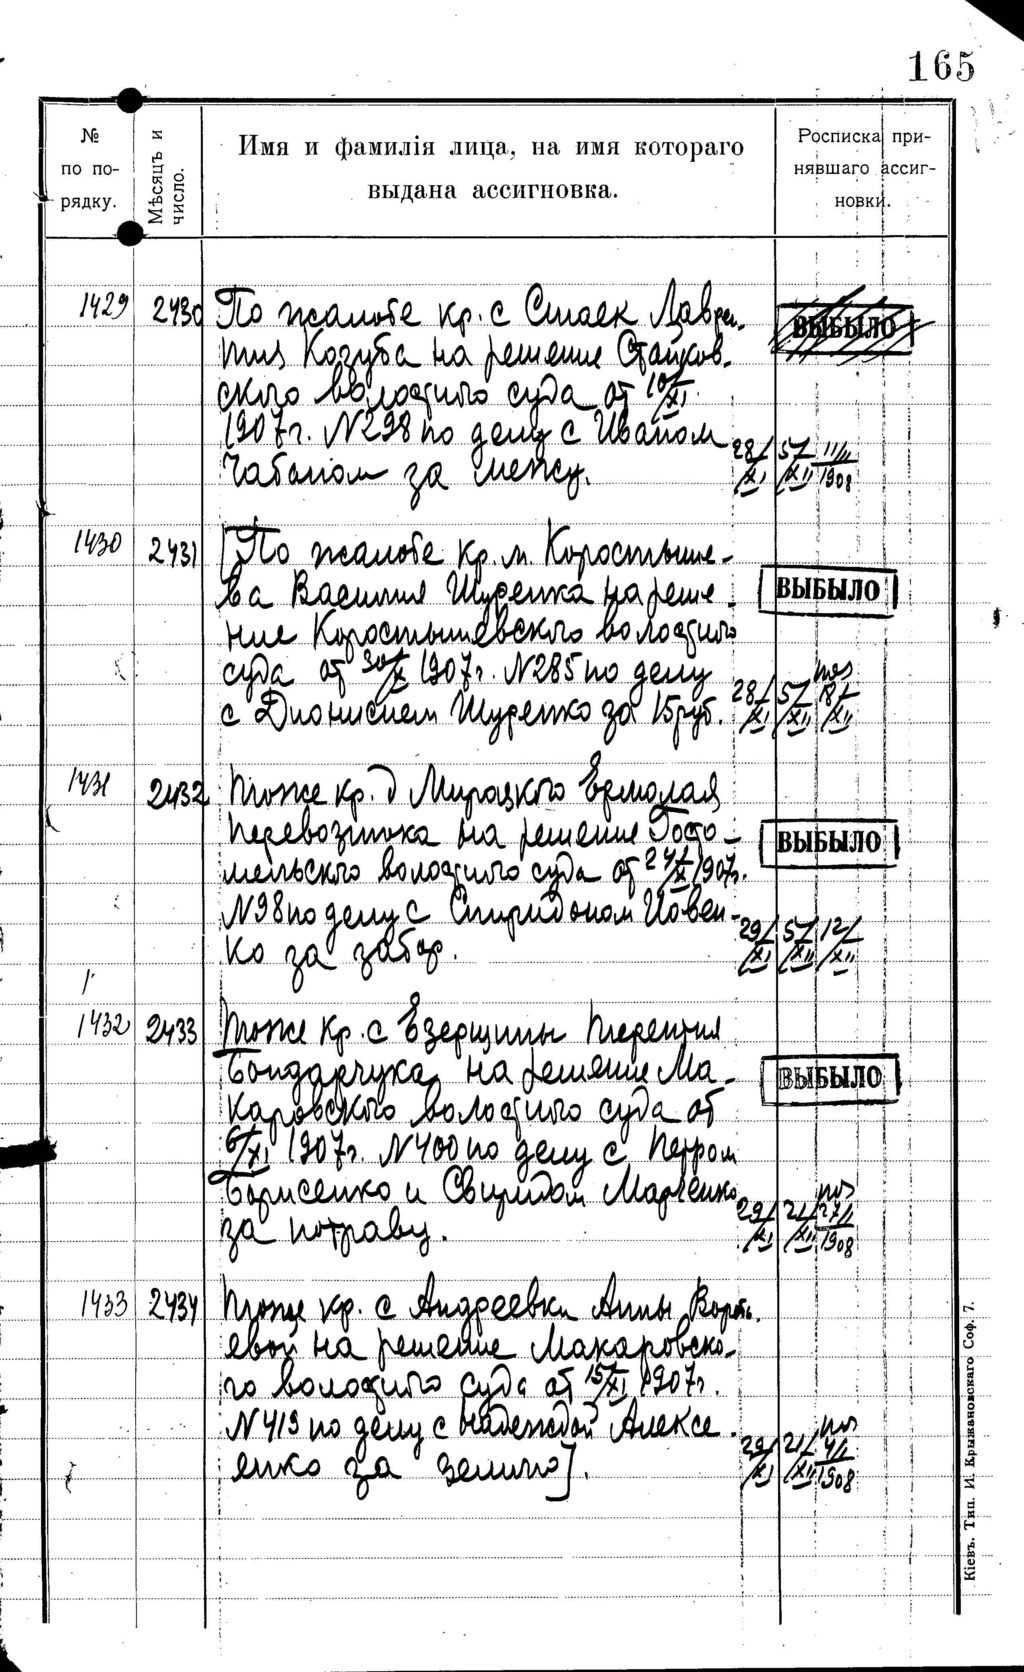 165
№ по по-рядку.
Мѣсяцъ и число.
Имя и фамилія лица, на имя котораго
выдана ассигновка.
Росписка при-
нявшаго ассиг-
новки.
1429 2430 По жалобе кр. с Стаек Лаврен-
тия Козуба на решение Стайков-
ского волостного суда от 10/XI
1907 г. N298 по делу с Иваном
Чабаном за межу.
ВЫБЫЛО
28/XI 5/XII 11/II 1908
1430 2431 По жалобе кр. м. Коростыше-
ва Василия Шуренка на реше-
ние Коростышевского волостного
суда от 30/X 1907 г. N285 по делу
с Дионисием Шуренко за 15 руб.
ВЫБЫЛО
28/XI 5/XII 18/XII
1431 2432 Тоже кр. д Мироцкого Ермолая
Перевозника на решение Госто-
мельского волостного суда от 24/X 1907 г.
N98 по делу с Спиридоном Иовен-
ко за забор.
ВЫБЫЛО
29/XI 5/XII 12/XII
1432 2433 Тоже кр. с Езерщины Терентия
Бондарчука на решение Ма-
каровского волостного суда от
6/XI 1907 г. N400 по делу с Петром
Борисенко и Свиридом Марченко
за потраву.
ВЫБЫЛО
29/XI 21/XII 27/I 1908
1433 2434 Тоже кр. с Андреевки Анны
на решение Макаровско-
го волостного суда от 15/XI 1907 г.
N419 по делу с Надеждой Алексе-
енко за землю].
29/XI 21/XII 4/I 1908
Кіевъ. Тип. И. Крыжановскаго Соф. 7.